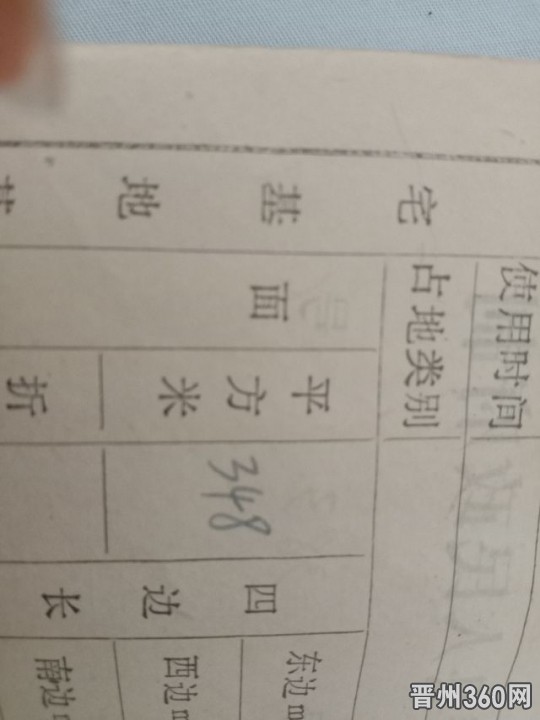 使用时间
占地类别
宅基地
面
平方米
348
折
四边长
东边m
西边m
南边m
晋州360网